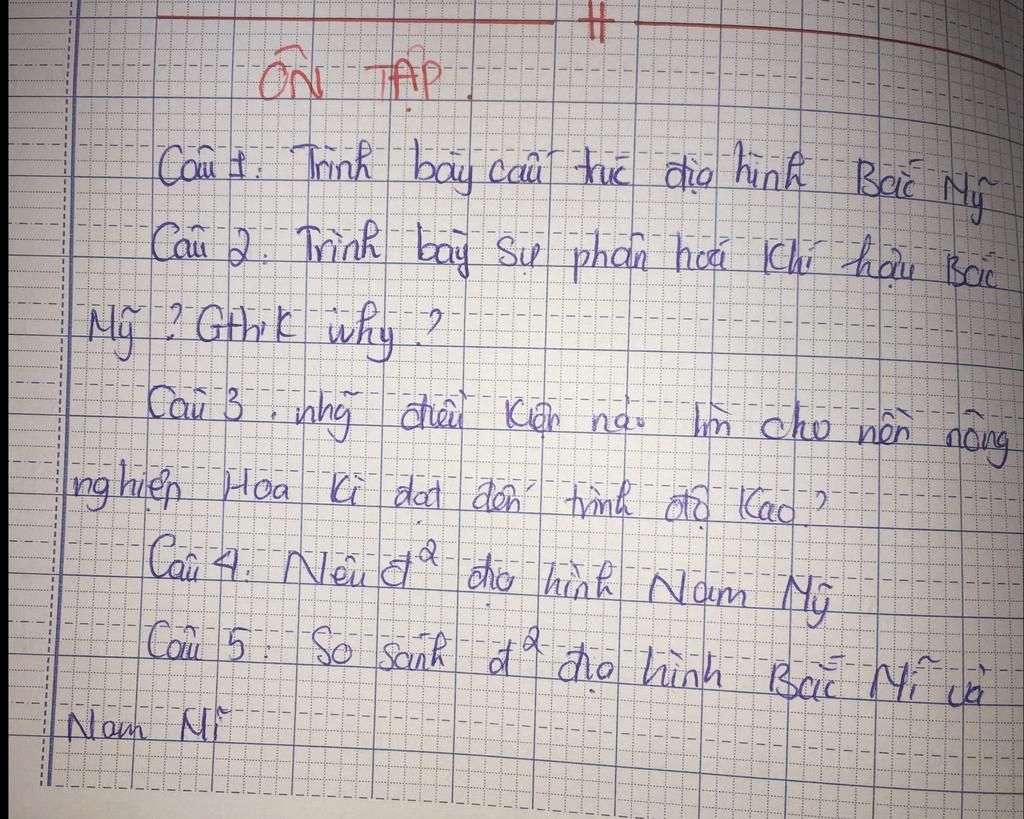 ÔN TẬP.
Câu 1. Trình bày cấu trúc địa hình Bắc Mỹ
Câu 2. Trình bày sự phân hoá khí hậu Bắc
Mỹ? Gthik why?
Câu 3. nhg điều kiện nào làm cho nền nông
nghiệp Hoa Kì đạt đến trình độ cao?
Câu 4. Nêu đ² địa hình Nam Mỹ
Câu 5. So sánh đ² địa hình Bắc Mĩ và
Nam Mĩ